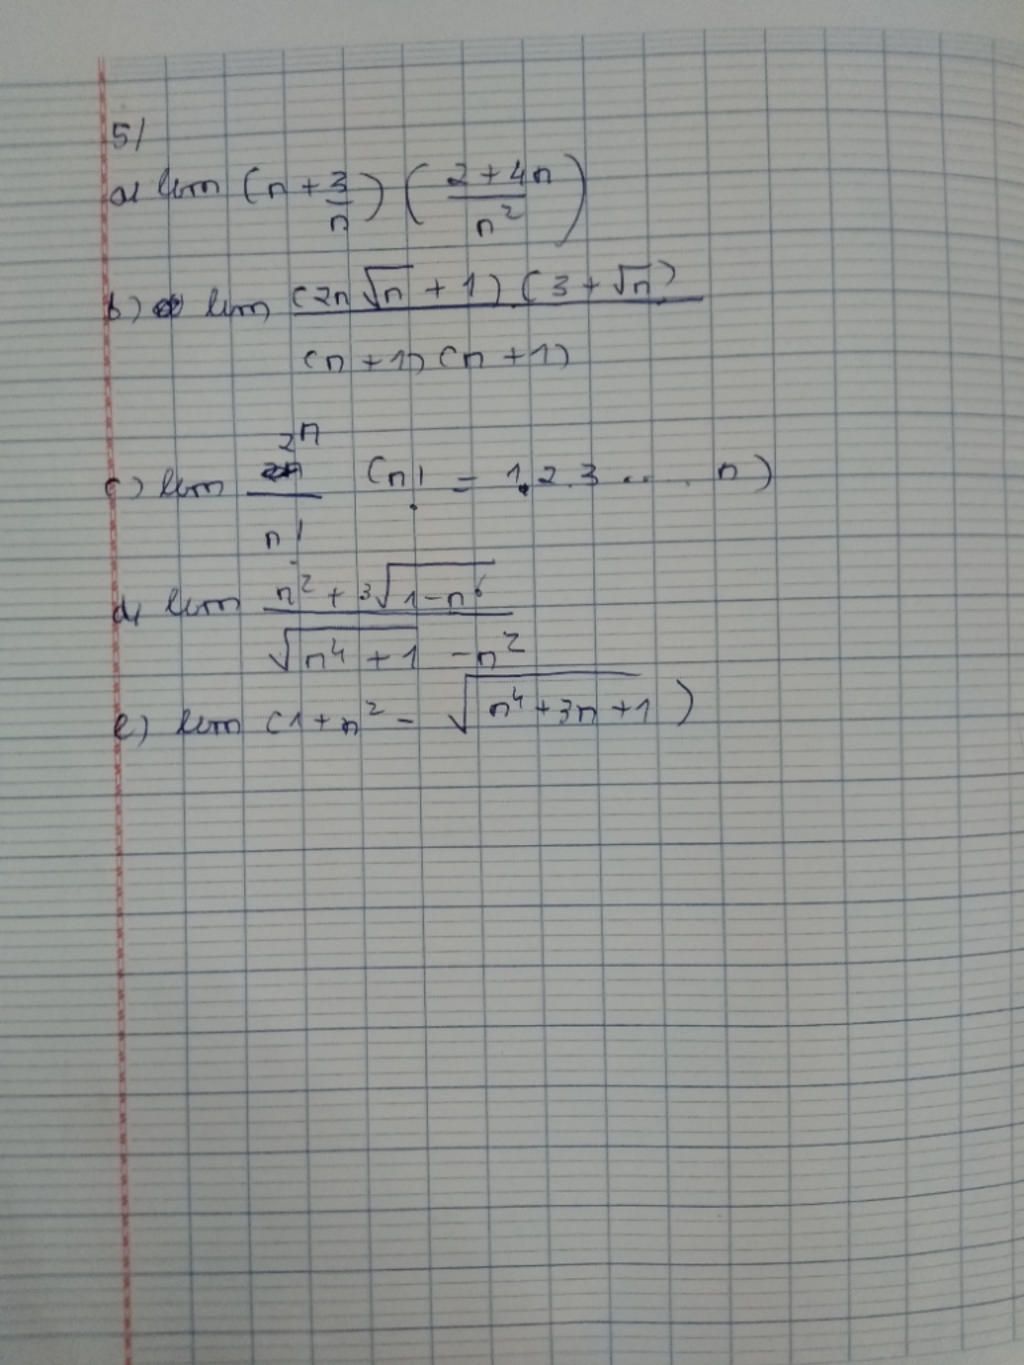 5/
a) lim (n + 3/n) ( (2 + 4n)/n² )
b) lim (2n√n + 1) (3 + √n) / (n + 1) (n + 1)
c) lim 2ⁿ / n! (n! = 1.2.3 ..... n)
d) lim (n² + ³√(1 - n⁶)) / (√(n⁴ + 1) - n²)
e) lim (1 + n² - √(n⁴ + 3n + 1) )